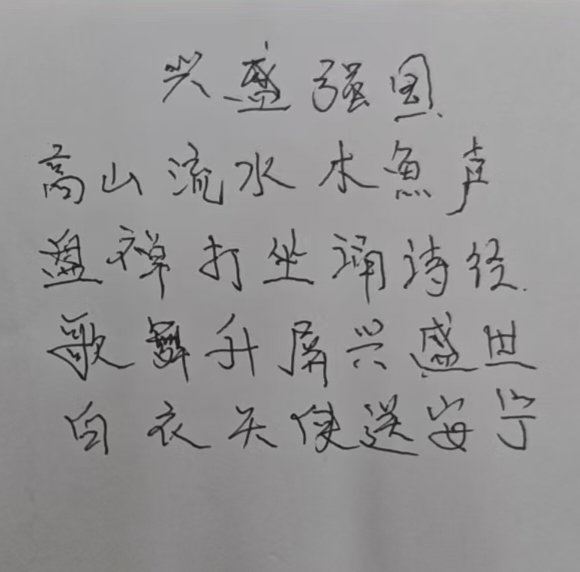 兴盛强国
高山流水木魚声
盘禅打坐诵诗经
歌舞升屏兴盛世
白衣天使送安宁